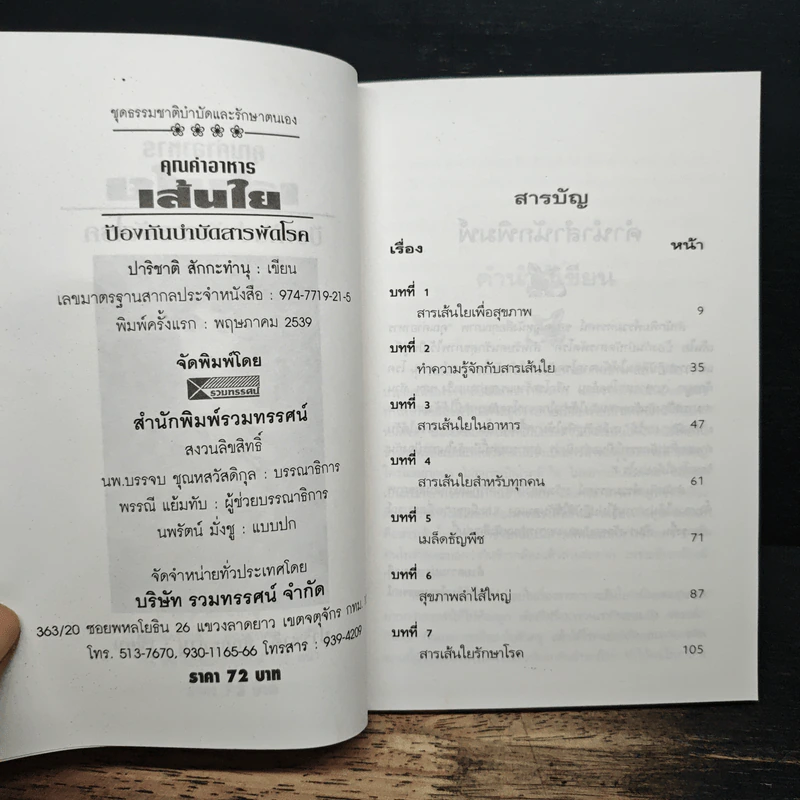 ชุดธรรมชาติบำบัดและรักษาตนเอง
คุณค่าอาหาร
เส้นใย
ป้องกันบำบัดสารพัดโรค
ปาริชาติ สักกะทำนุ : เขียน
เลขมาตรฐานสากลประจำหนังสือ : 974-7719-21-5
พิมพ์ครั้งแรก : พฤษภาคม 2539
จัดพิมพ์โดย
รวมทรรศน์
สำนักพิมพ์รวมทรรศน์
สงวนลิขสิทธิ์
นพ.บรรจบ ชุณหสวัสดิกุล : บรรณาธิการ
พรรณี แย้มทับ : ผู้ช่วยบรรณาธิการ
นพรัตน์ มั่งชู : แบบปก
จัดจำหน่ายทั่วประเทศโดย
บริษัท รวมทรรศน์ จำกัด
363/20 ซอยพหลโยธิน 26 แขวงลาดยาว เขตจตุจักร กทม.
โทร. 513-7670, 930-1165-66 โทรสาร : 939-4209
ราคา 72 บาท
สารบัญ
เรื่อง หน้า
บทที่ 1
สารเส้นใยเพื่อสุขภาพ 9
บทที่ 2
ทำความรู้จักกับสารเส้นใย 35
บทที่ 3
สารเส้นใยในอาหาร 47
บทที่ 4
สารเส้นใยสำหรับทุกคน 61
บทที่ 5
เมล็ดธัญพืช 71
บทที่ 6
สุขภาพลำไส้ใหญ่ 87
บทที่ 7
สารเส้นใยรักษาโรค 105